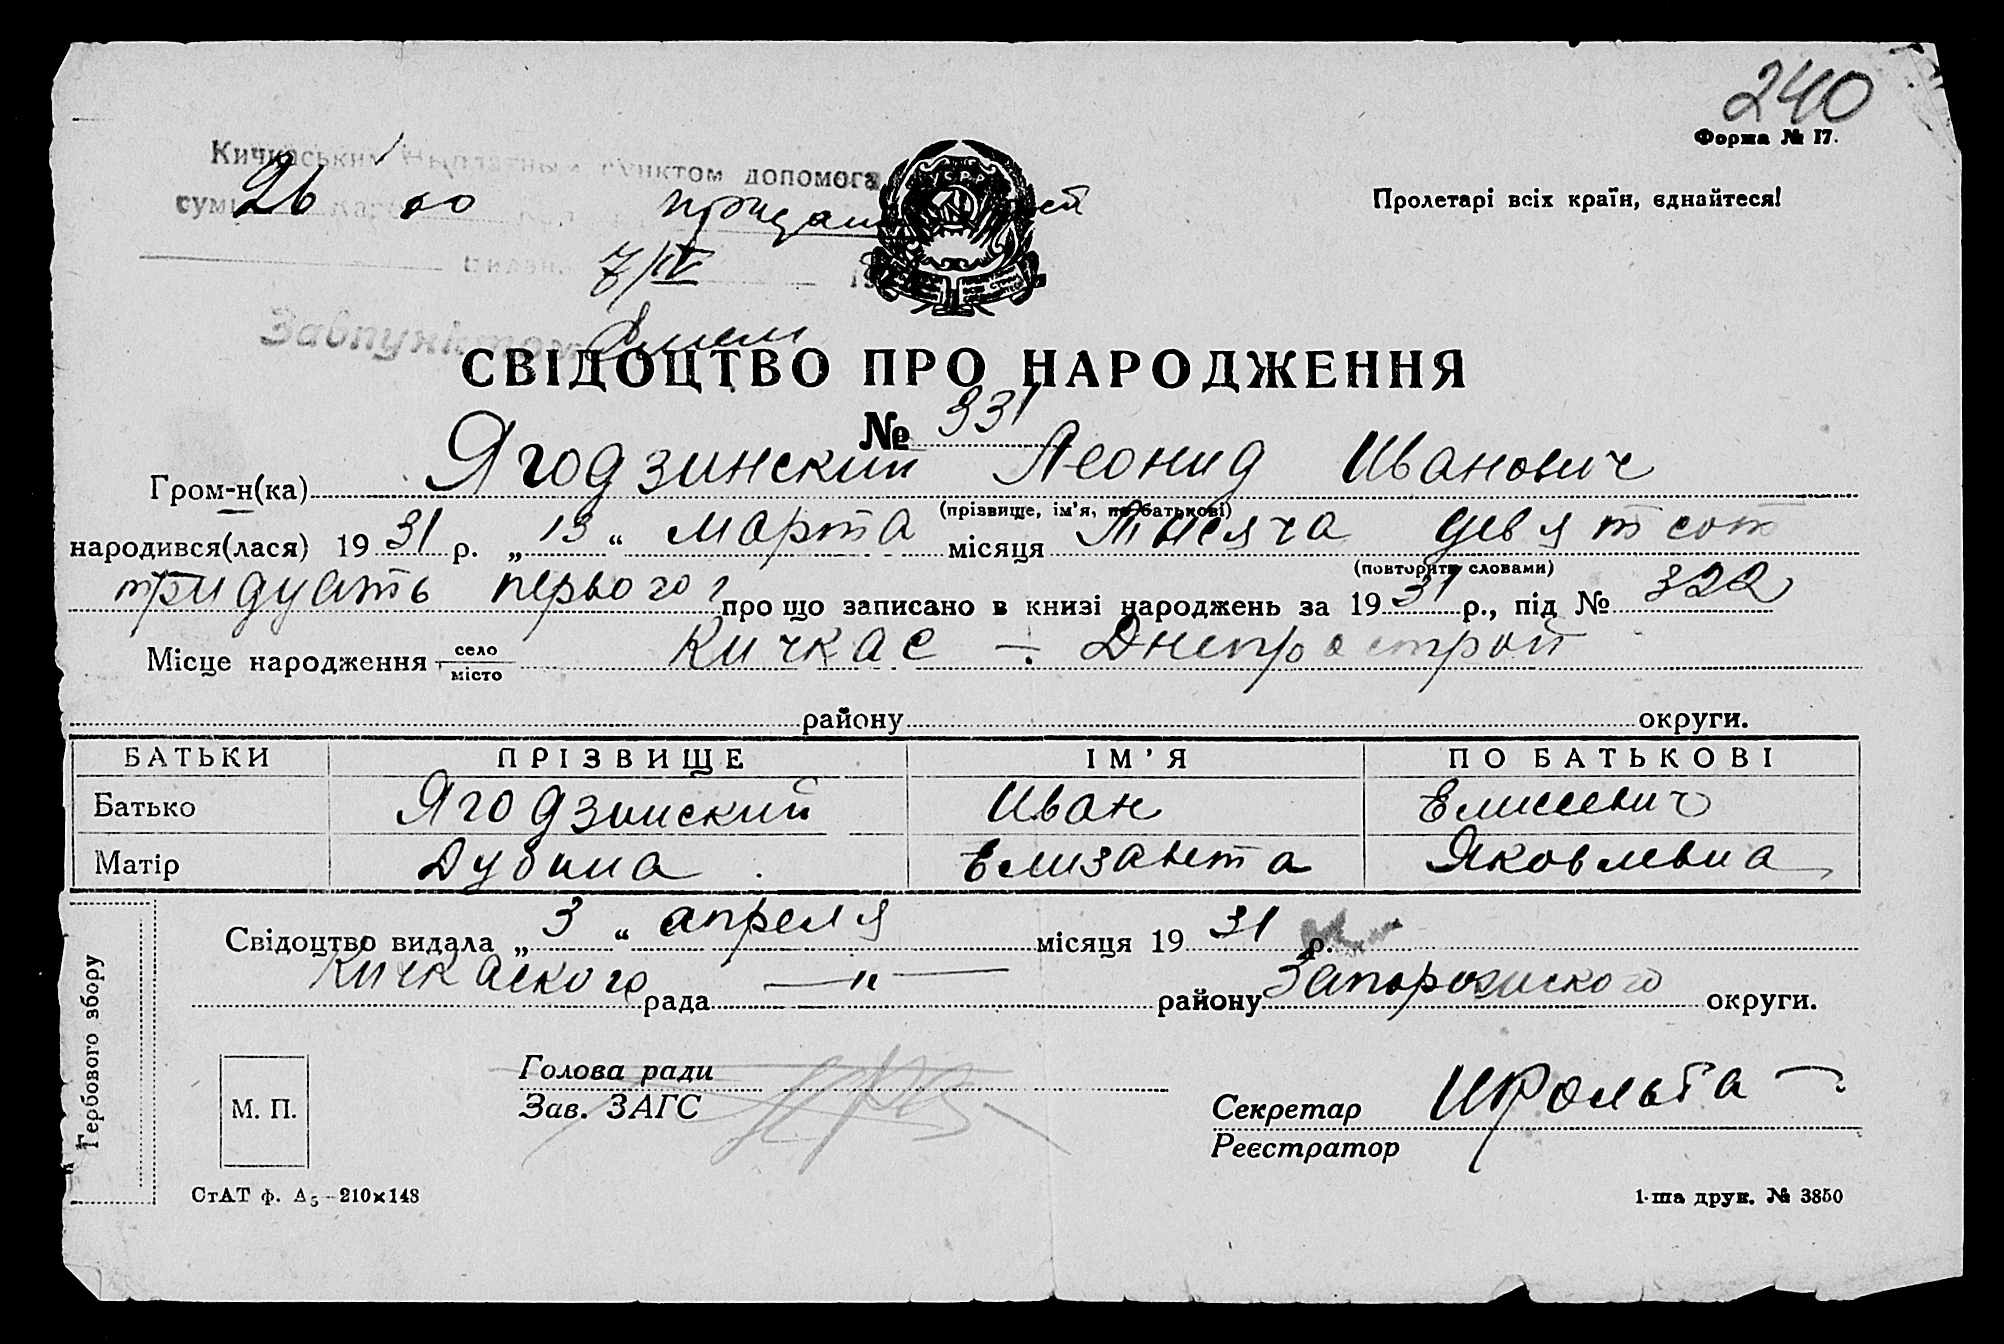 240
Форма № 17.
Кичкаським виплатним пунктом допомога
26 ко
Пролетарі всіх країн, єднайтеся!
7/IV
Завпунктом
СВІДОЦТВО ПРО НАРОДЖЕННЯ
№ 331
Гром-н(ка) Ягодзинский Леонид Иванович
(прізвище, ім'я, по батькові)
народився(лася) 1931 р. „13“ марта місяця тысяча девятсот
(повторити словами)
тридцать первого г про що записано в книзі народжень за 1931 р., під № 322
Місце народження село місто Кичкас — Днепрострой
району округи.
БАТЬКИ ПРІЗВИЩЕ ІМ'Я ПО БАТЬКОВІ
Батько Ягодзинский Иван Елисеевич
Матір Дубина Елизавета Яковлевна
Свідоцтво видала „3“ апреля місяця 1931 р.
Кичкаского рада —"— району Запорожского округи.
Гербового збору
М. П.
Голова ради
Зав. ЗАГС
Секретар
Реєстратор
СтАТ ф. А5—210×148
1-ша друк. № 3850